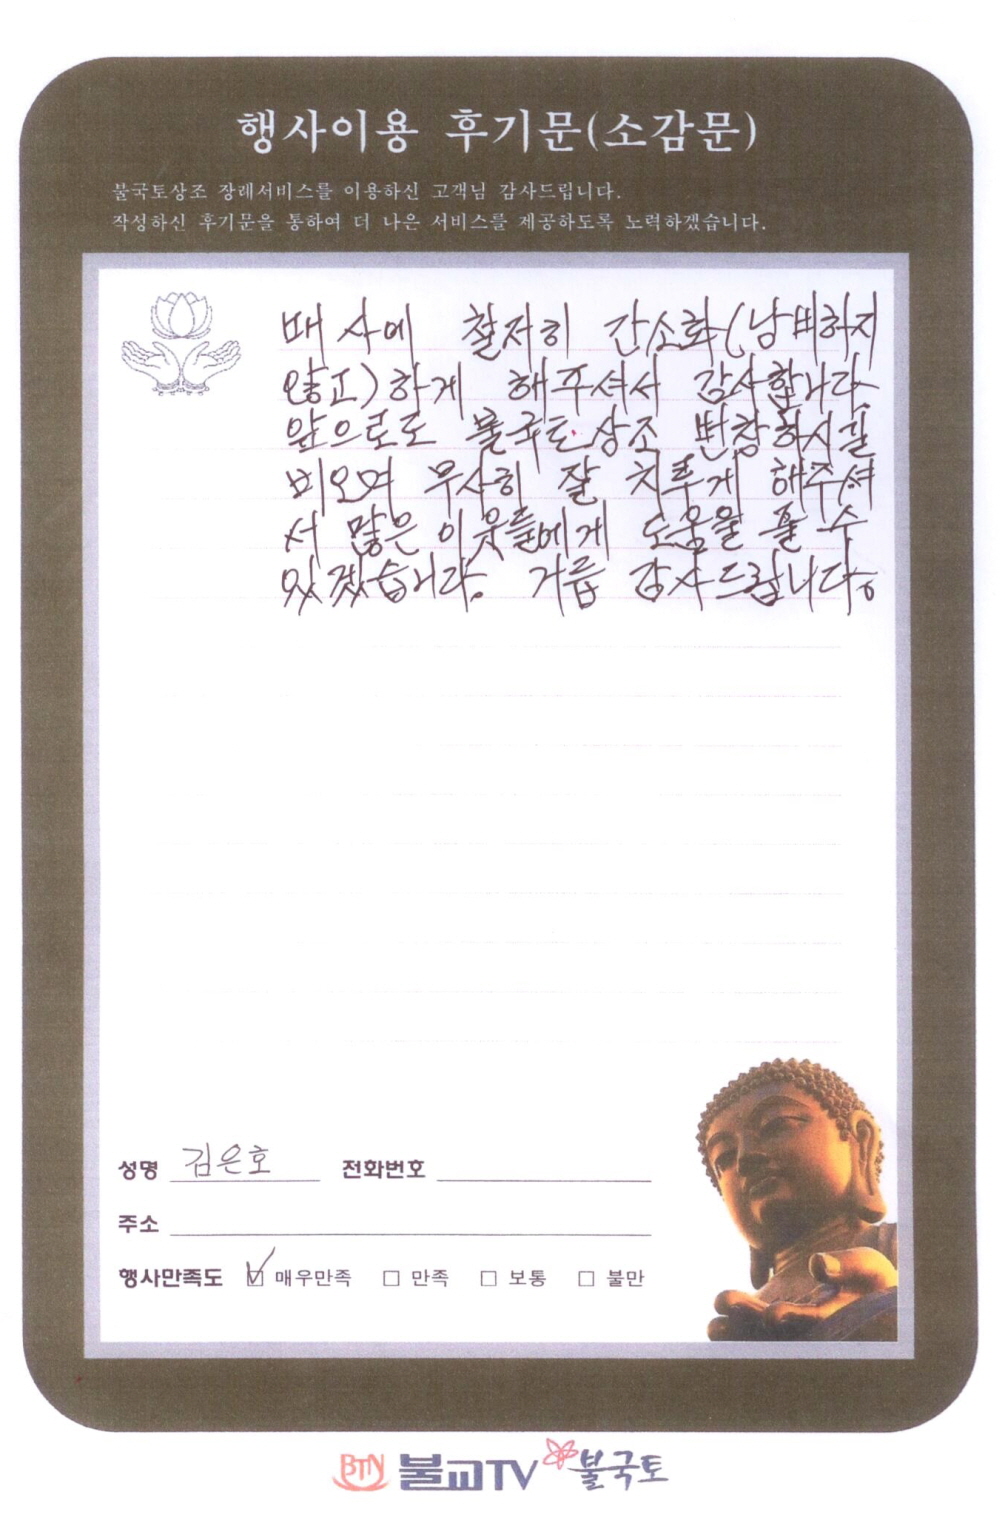 행사이용 후기문(소감문)
불국토상조 장례서비스를 이용하신 고객님 감사드립니다.
작성하신 후기문을 통하여 더 나은 서비스를 제공하도록 노력하겠습니다.
매 사에 철저히 간소화(남비하지
않고)하게 해주셔서 감사합니다.
앞으로도 불국토 상조 번창하시길
비오며 무사히 잘 치루게 해주셔
서 많은 이웃들에게 도움을 줄 수
있겠습니다. 거듭 감사드립니다.
성명 김은호 전화번호
주소
행사만족도 ☑ 매우만족 □ 만족 □ 보통 □ 불만
BTN 불교TV 불국토